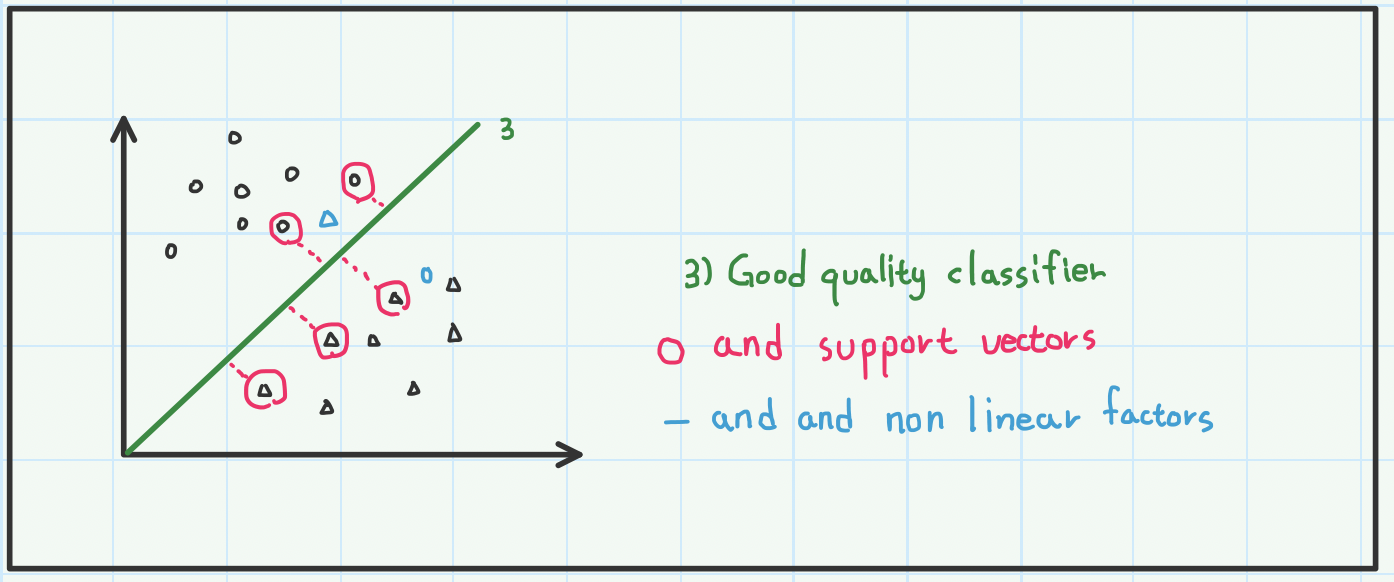 3
3) Good quality classifier
O and support vectors
— and and non linear factors